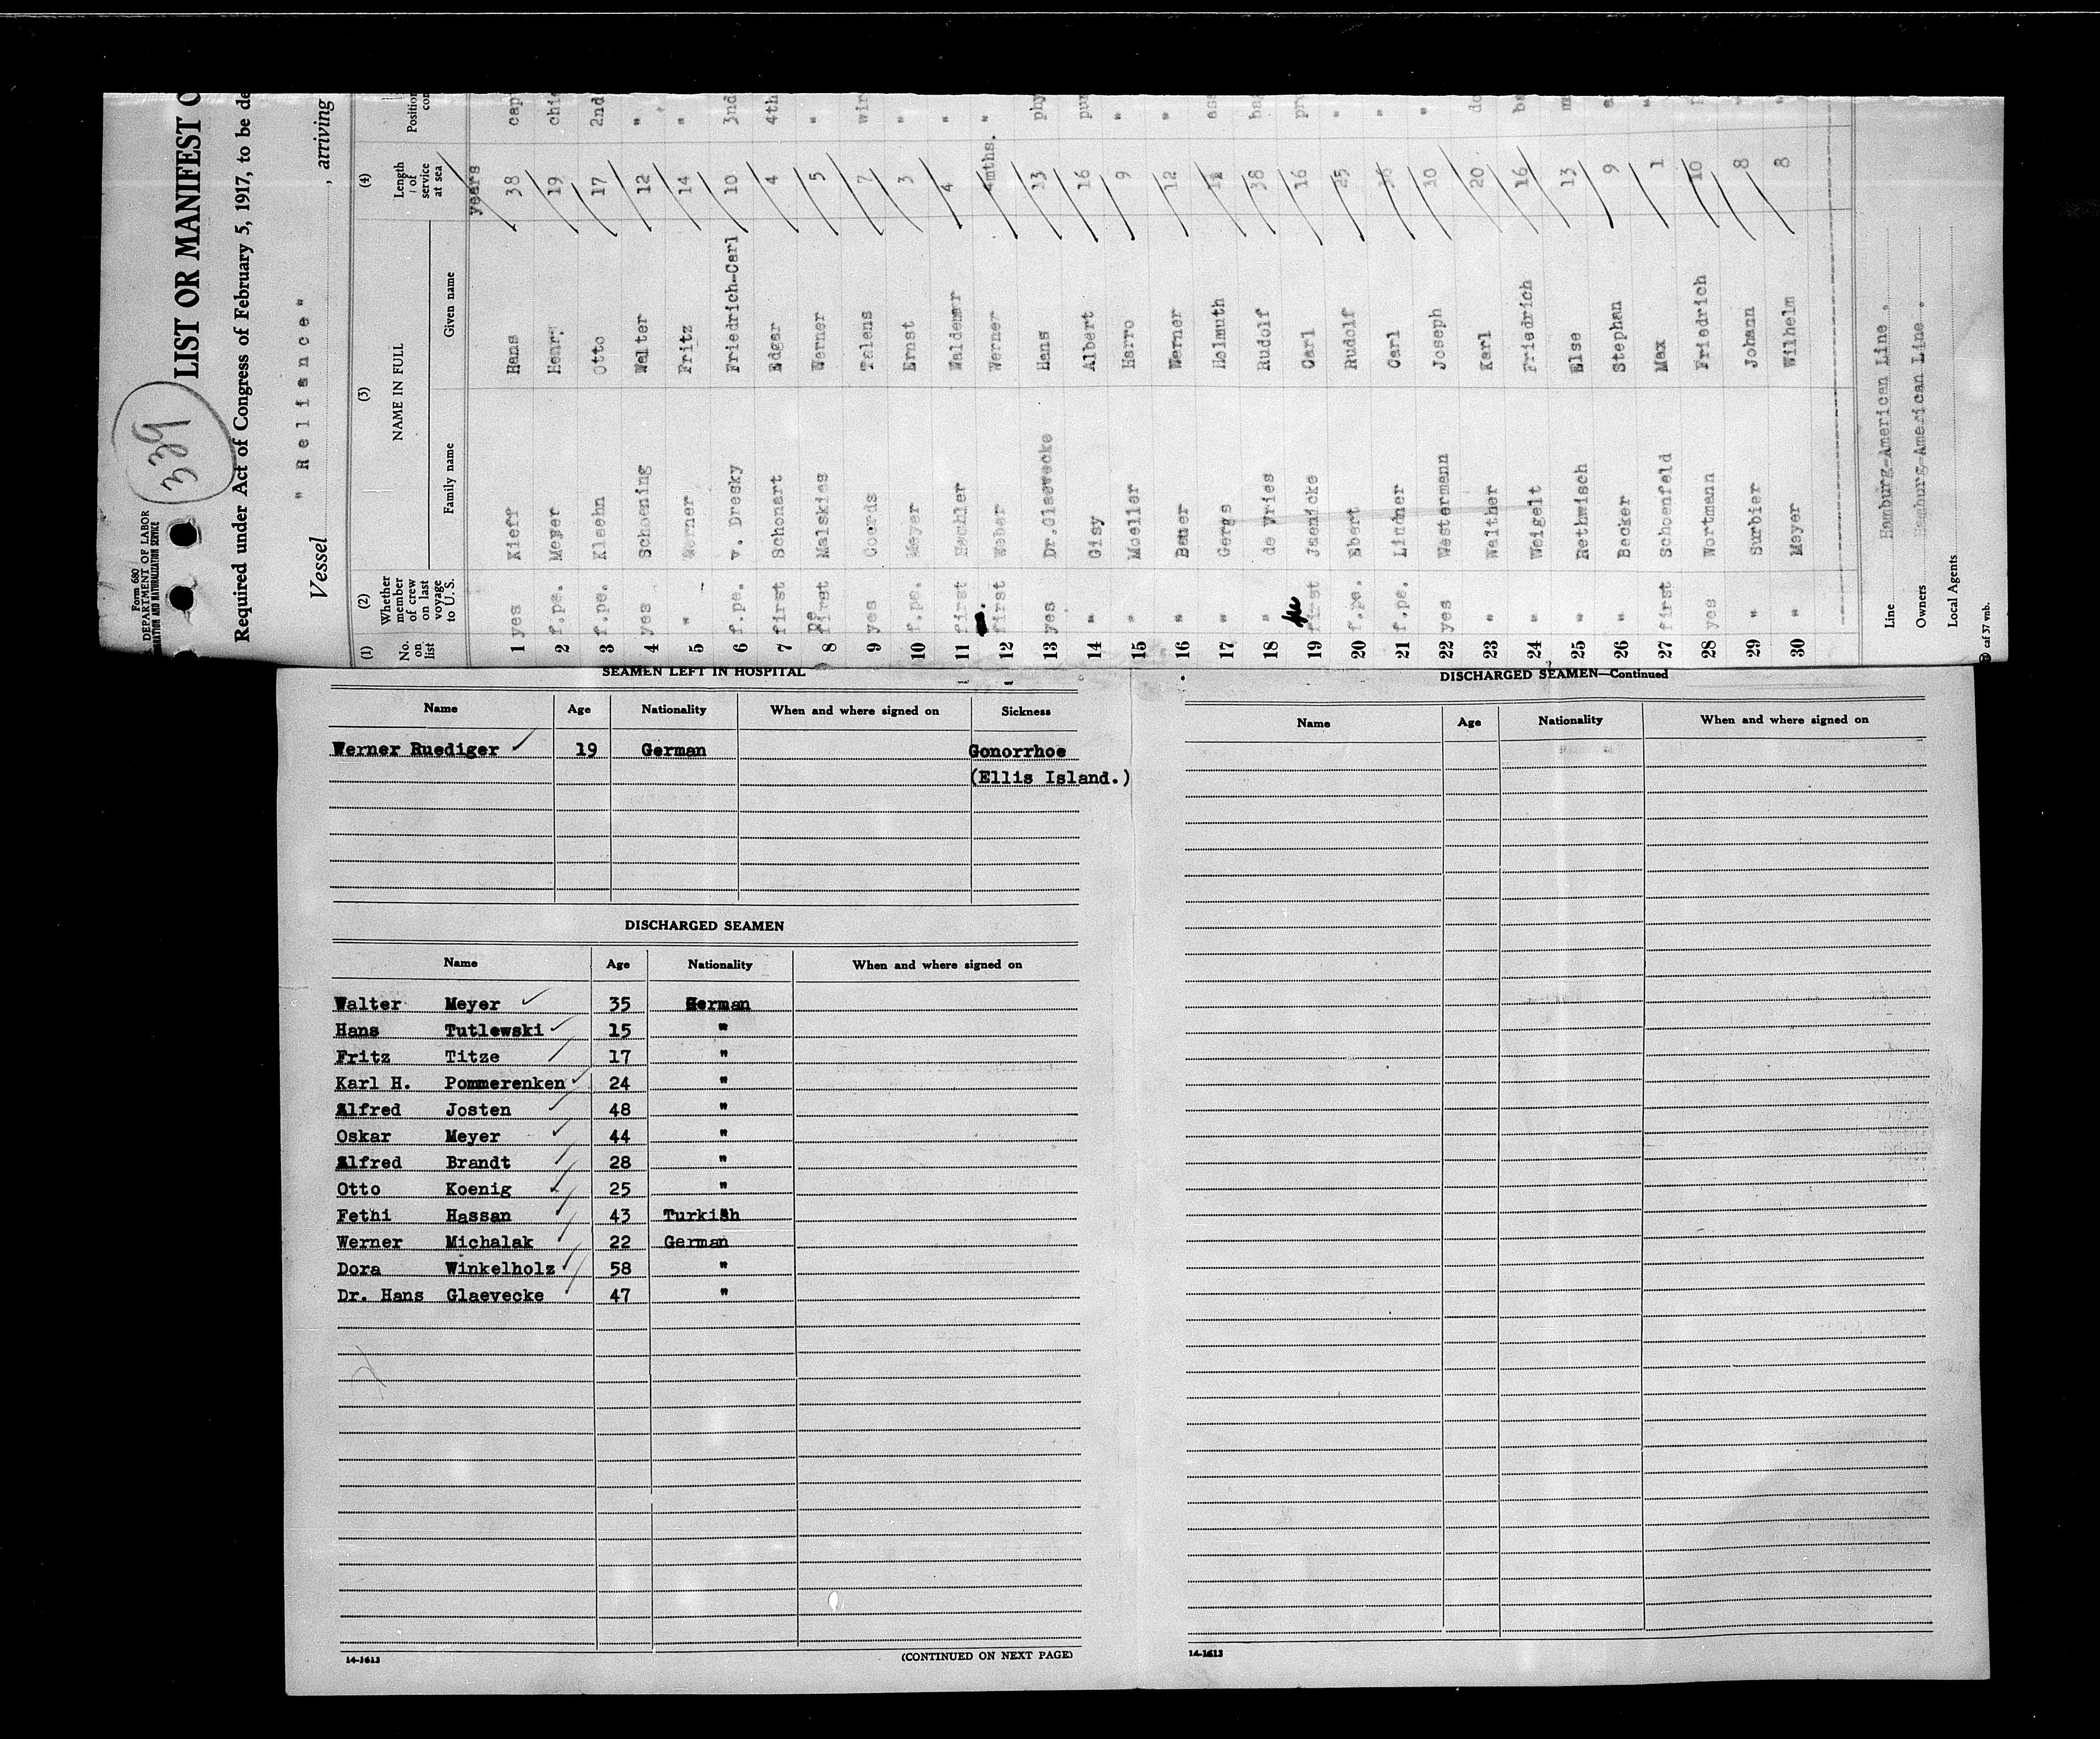 Form 680
DEPARTMENT OF LABOR
LIST OR MANIFEST O
Required under Act of Congress of February 5, 1917, to be de
Vessel " Reliance " , arriving
(1) (2) (3) (4)
No. on list
Whether member of crew on last voyage to U. S.
NAME IN FULL
Family name Given name
Length of service at sea
Position
years
1 yes Kieff Hans 38 cap
2 f.pe. Meyer Henry 19 chie
3 f.pe. Klaehn Otto 17 2nd
4 yes Schoening Walter 12 "
5 " Werner Fritz 14 "
6 f.pe. v. Dresky Friedrich-Carl 10 3nd
7 first Schonart Edgar 4 4th
8 first Malskies Werner 5 "
9 yes Coords 7 wir
10 f.pe. Meyer Ernst 3 "
11 first Waldemar 4 "
12 first Weber Werner 4mths. "
13 yes Dr.Glaevecke Hans 13 phy
14 " Gisy Albert 16 pur
15 " Moeller Harro 9 "
16 " Bauer Werner 12 "
17 " Gergs Helmuth ass
18 " de Vries Rudolf 38 bag
19 first Jaenicke Carl 16 pro
20 f.pe. Ebert Rudolf 25 "
21 f.pe. Lindner Carl "
22 yes Westermann Joseph 30 "
23 " Walther Karl 20 do
24 " Weigelt Friedrich 16
25 " Rethwisch Else 13 m
26 " Becker Stephan 9 a
27 first Schoenfeld Max 1 "
28 yes Wortmann Friedrich 10
29 " Surbier Johann 8 "
30 " Meyer Wilhelm 8 "
Line Hamburg-American Line .
Owners Hamburg-American Line .
Local Agents
caf 37 vnb.
SEAMEN LEFT IN HOSPITAL
Name Age Nationality When and where signed on Sickness
Werner Ruediger 19 German Gonorrhoe
(Ellis Island.)
DISCHARGED SEAMEN
Name Age Nationality When and where signed on
Walter Meyer 35 German
Hans Tutlewski 15 "
Fritz Titze 17 "
Karl H. Pommerenken 24 "
Alfred Josten 48 "
Oskar Meyer 44 "
Alfred Brandt 28 "
Otto Koenig 25 "
Fethi Hassan 43 Turkish
Werner Michalak 22 German
Dora Winkelholz 58 "
Dr. Hans Glaevecke 47 "
14-1613 (CONTINUED ON NEXT PAGE)
DISCHARGED SEAMEN—Continued
Name Age Nationality When and where signed on
14-1613